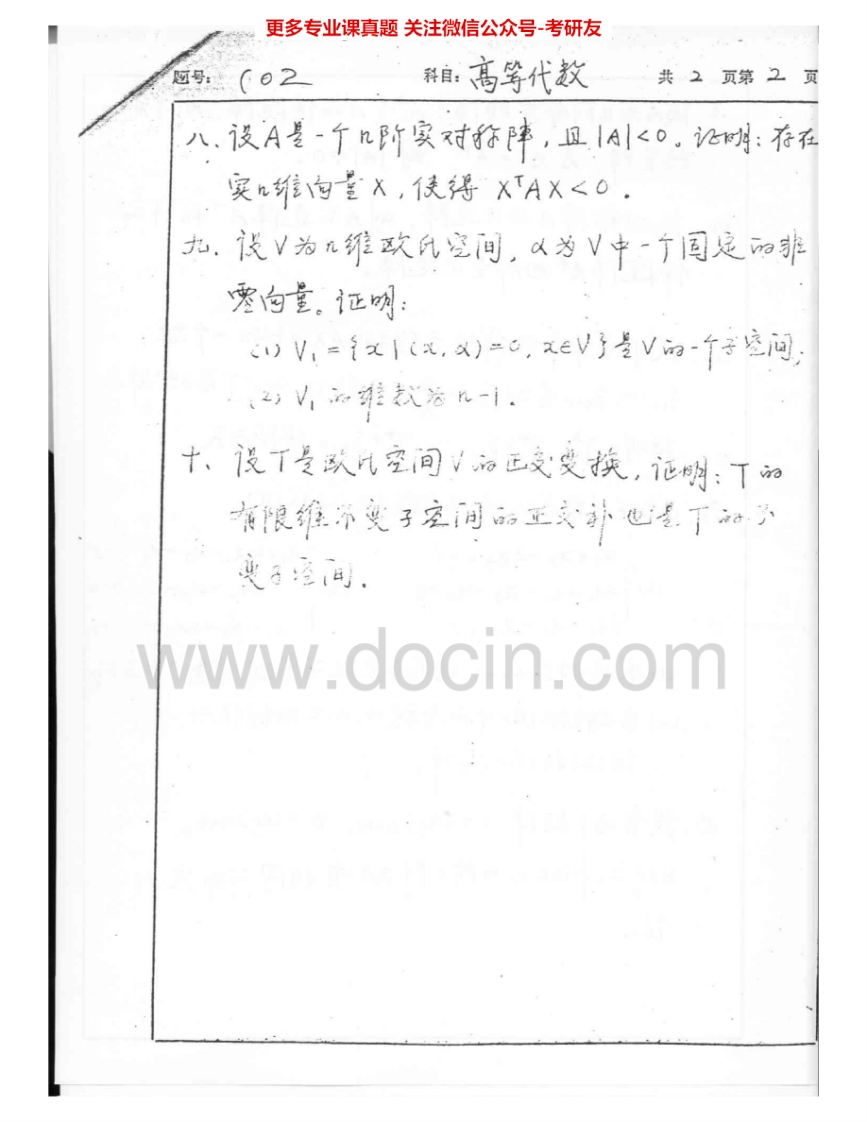 更多专业课真题 关注微信公众号-考研友
题号: 602 科目: 高等代数 共 2 页第 2 页
八、设A是一个n阶实对称阵, 且|A|<0。证明: 存在
实n维向量X, 使得 XᵀAX<0.
九、设V为n维欧氏空间, α为V中一个固定的非
零向量。证明:
(1) V₁={x|(x,α)=0, x∈V}是V的一个子空间;
(2) V₁的维数为n-1.
十、设T是欧氏空间V的正交变换, 证明: T的
有限维不变子空间的正交补也是T的不
变子空间.
www.docin.com